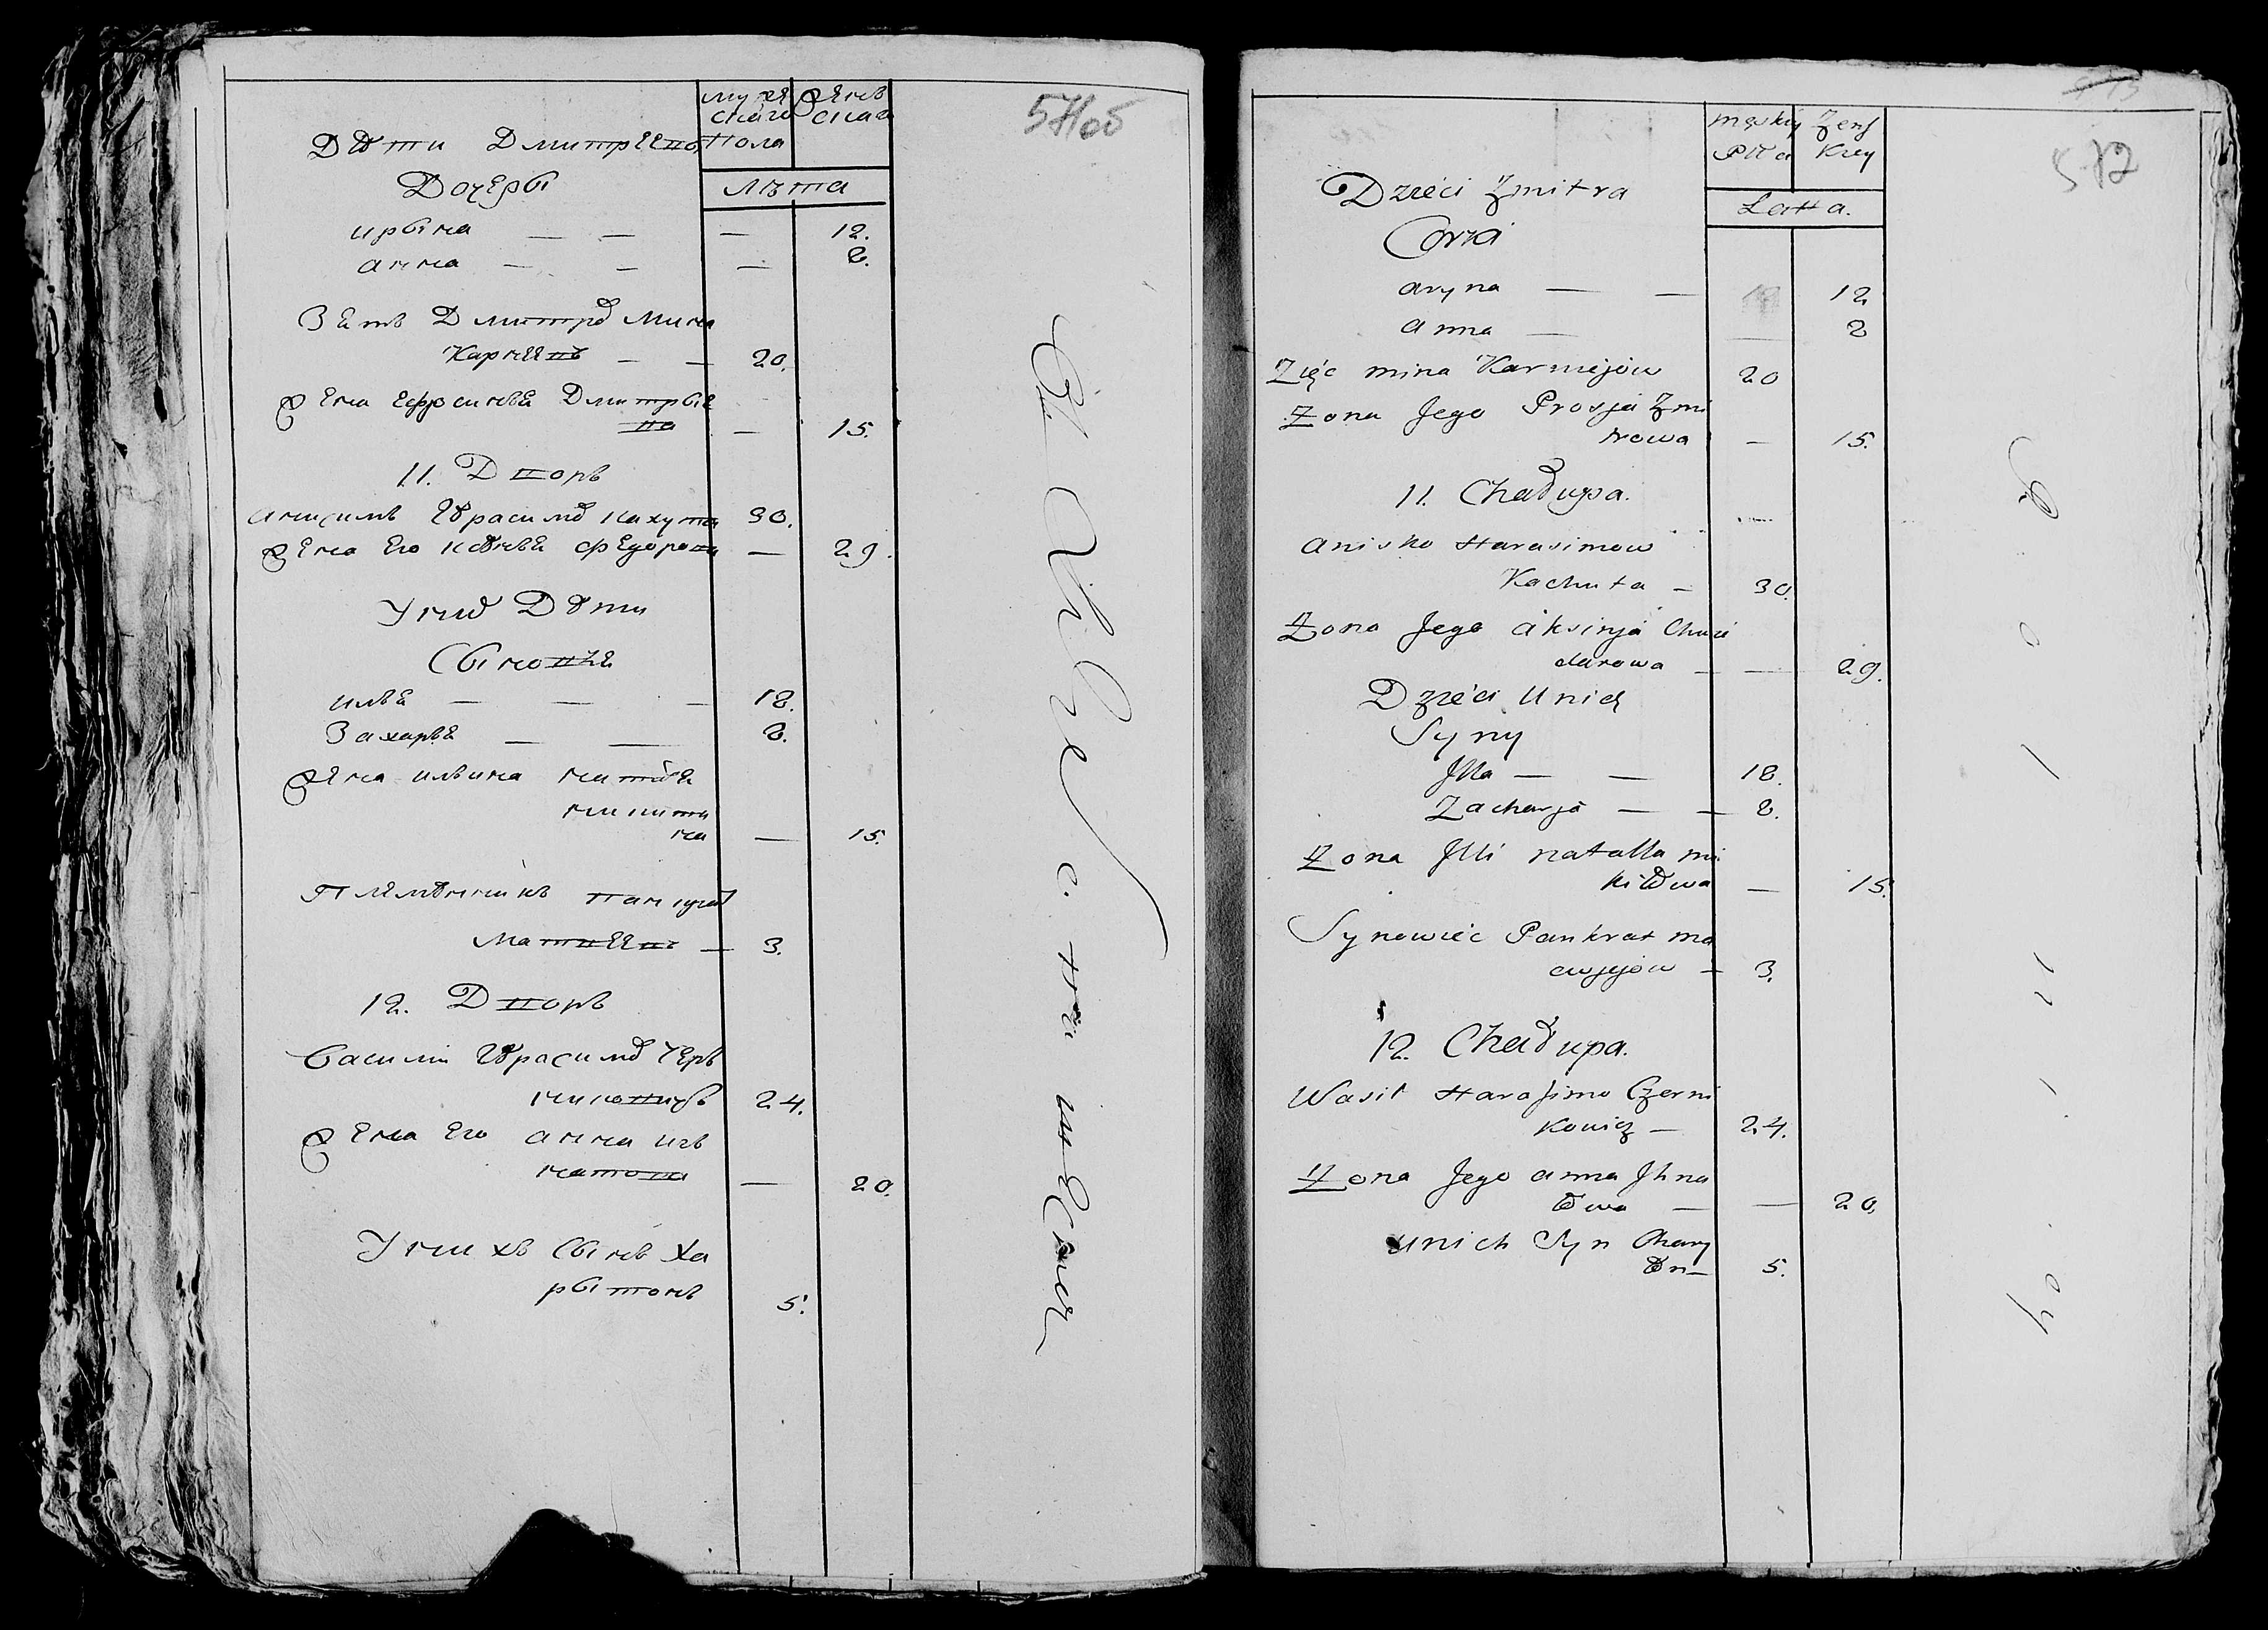 571об
муже женс
скаго скаго
Дѣти Дмитреево Пола
Дочеры Лѣта
ирына — — — 12.
анна — — — 8.
Зять Дмитрѣ Мина
Карнеевъ — — 20.
жена ефросинья Дмитрые
ва — 15.
11. Дворъ
анисимъ Герасимѣ кахута 30.
жена Его ксѣнья Федорова — 29.
У нихъ Дѣти
Сыновья
илья — — — 18.
Захарья — — 8.
жена ильина наталья
никити
на — 15.
Племѣнникъ панкрат
Матвеевъ — 3.
12. Дворъ
Василий Герасимѣ Черъ
никовичъ 24.
жена Его анна игъ
натова — 20.
У нихъ Сынъ Ха
рытонъ 5.
572
Męskiey Żens
Płci kiey
Dzieci Zmitra
Corki Latta.
aryna — — 12
anna — — 8
Zięc mina Karniejow 20
Żona Jego Prosja Zmi
trowa — 15.
11. Chałupa.
Anisko Harasimow
Kachuta — 30.
Żona Jego aksinja Chwie
darowa — — 29.
Dzieci Unich
Syny
Jlla — — 18.
Zacharja — — 8.
Żona Jlli natalla mi
kitowa — 15.
Synowiec Pankrat ma
cwjejow — 3.
12. Chałupa.
Wasil Harasimo Czerni
kowicz — 24.
Żona Jego anna Jhna
towa — — 20.
unich Syn Chary
ton — 5.